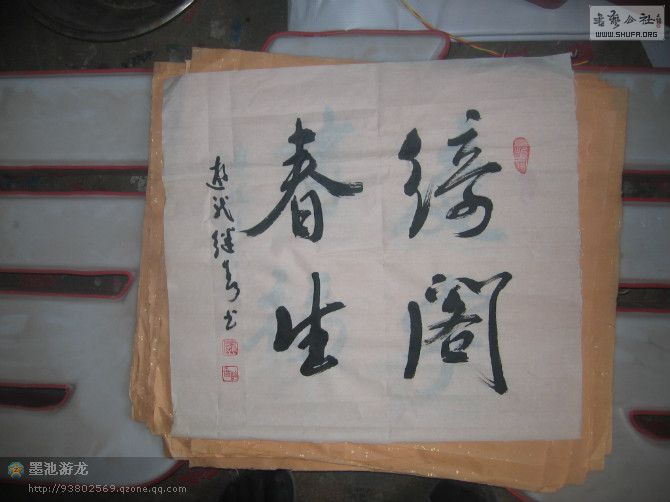 绮阁
春生
游龙继春书
书艺公社
WWW.SHUFA.ORG
墨池游龙
http://93802569.qzone.qq.com